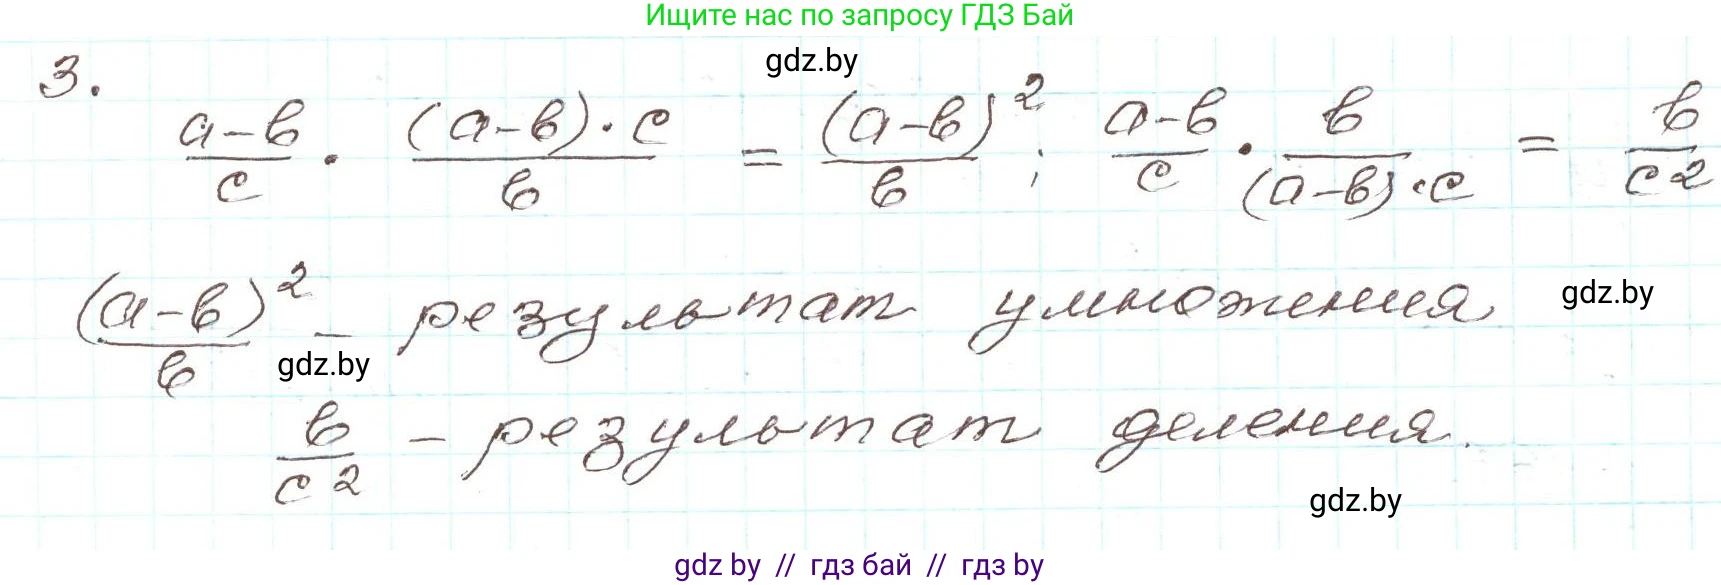 Ищите нас по запросу ГДЗ Бай
gdz.by
3.
(a-b)/c · ((a-b)·c)/b = (a-b)²/b ; (a-b)/c · b/((a-b)·c) = b/c²
(a-b)²/b - результат умножения
gdz.by
gdz.by
b/c² - результат деления.
gdz.by
gdz by // гдз бай // гдз by